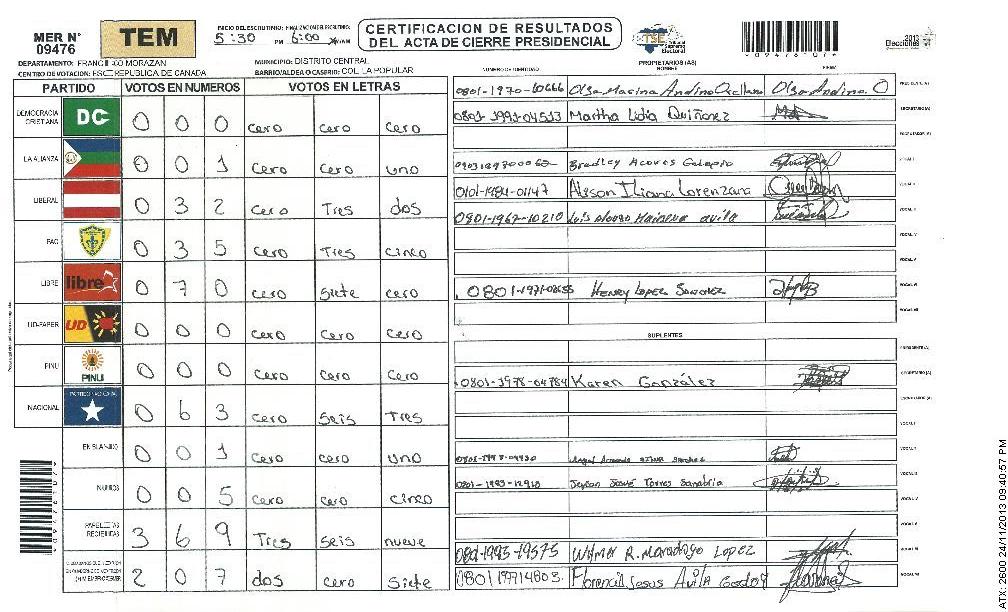 MER N° 09476
TEM
INICIO DEL ESCRUTINIO: 5:30 PM FINALIZACION DEL ESCRUTINIO: 6:00
CERTIFICACION DE RESULTADOS
DEL ACTA DE CIERRE PRESIDENCIAL
TSE Tribunal Supremo Electoral
2013 Elecciones
DEPARTAMENTO: FRANCISCO MORAZAN
MUNICIPIO: DISTRITO CENTRAL
CENTRO DE VOTACION: ESC REPUBLICA DE CANADA
BARRIO/ALDEA O CASERIO: COL. LA POPULAR
NUMERO DE IDENTIDAD PROPIETARIOS (AS) NOMBRE FIRMA
PARTIDO VOTOS EN NUMEROS VOTOS EN LETRAS
DEMOCRACIA CRISTIANA DC 0 0 0 cero cero cero
LA ALIANZA 0 0 1 cero cero uno
LIBERAL 0 3 2 cero Tres dos
PAC 0 3 5 cero Tres cinco
LIBRE libre 0 7 0 cero Siete cero
UD-FAPER UD 0 0 0 cero cero cero
PINU PINU 0 0 0 cero cero cero
NACIONAL PARTIDO NACIONAL 0 6 3 cero Seis Tres
EN BLANCO 0 0 1 cero cero uno
NULOS 0 0 5 cero cero cinco
PAPELETAS RECIBIDAS 3 6 9 Tres seis nueve
2 0 7 dos cero Siete
0801-1970-10666 Olga Marina Andino Olga Andino. O PRESIDENTE (A)
0801-1991-04513 Martha Lidia Quiñonez SECRETARIO (A)
ESCRUTADOR (A)
Bradley VOCAL I
0101-1984-01147 Alison Iliana Lorenzana VOCAL II
0801-1967-10210 Luis Alonso Mairena avila VOCAL III
VOCAL IV
VOCAL V
Henry Lopez Sanchez VOCAL VI
VOCAL VII
SUPLENTES
PRESIDENTE (A)
0801-1978-04784 Karen González SECRETARIO (A)
ESCRUTADOR (A)
VOCAL I
VOCAL II
0801-1983-12918 Jeyson Josué Torres Sanabria VOCAL III
VOCAL IV
VOCAL V
0801-1995-19575 Wilmer R. Lopez VOCAL VI
0801 19714803 Jesus Avila Godoy VOCAL VII
ATX-2600 24/11/2013 09:40:57 PM